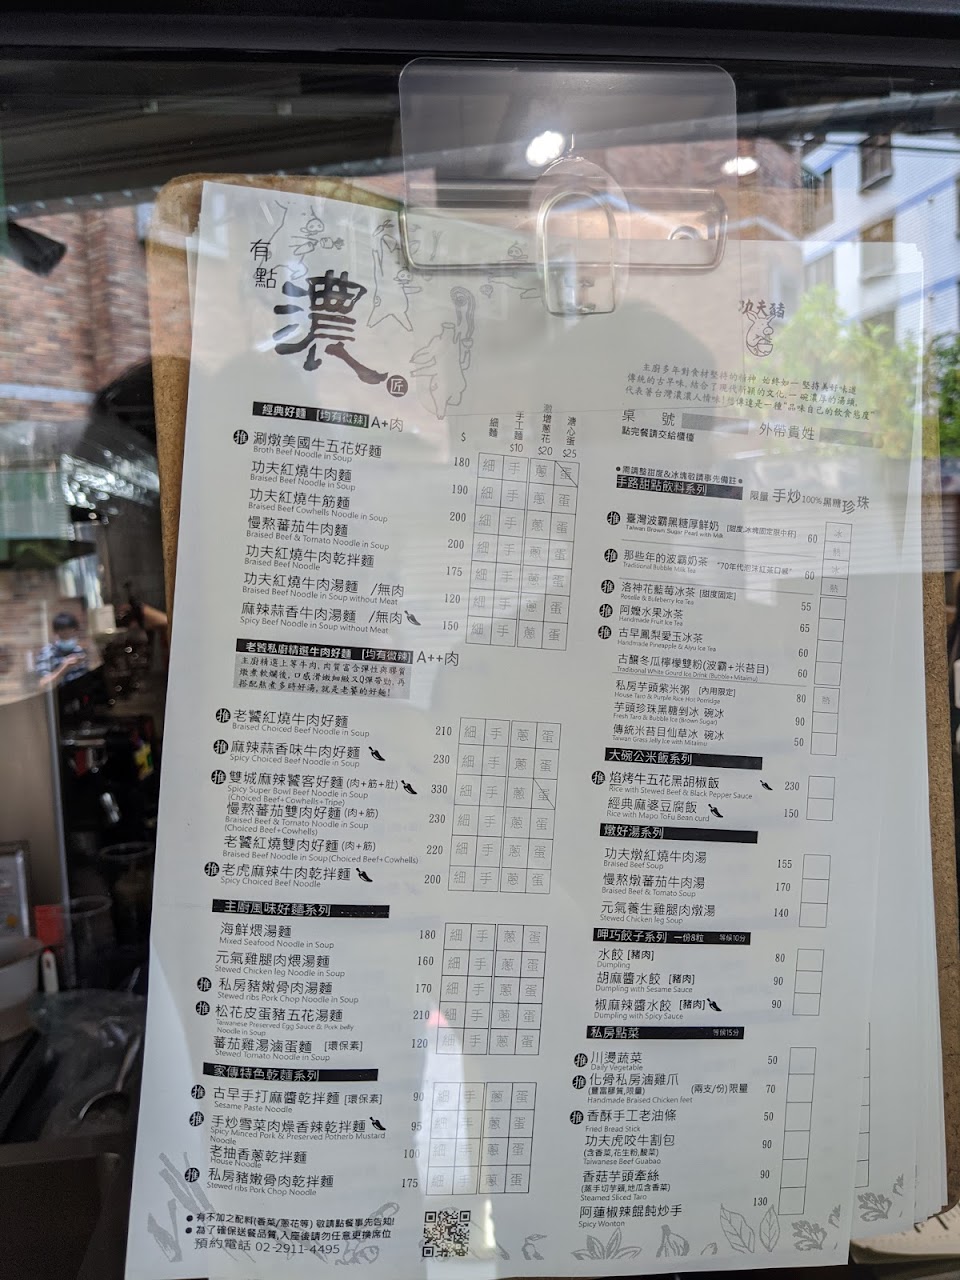 有點
濃
匠
功夫豬
傳統的古早味,結合了現代所新穎的文化,一碗濃厚的湯頭,
桌 號
外帶貴姓
點完餐請交給櫃檯
經典好麵 [均有微辣] A+肉
$ 細麵 手工麵$10 激增蔥花$20 溏心蛋$25
推 涮燉美國牛五花好麵 180 細 手 蔥 蛋
Broth Beef Noodle in Soup
功夫紅燒牛肉麵 190 細 手 蔥 蛋
Braised Beef Noodle in Soup
功夫紅燒牛筋麵 200 細 手 蔥 蛋
Braised Beef Cowhells Noodle in Soup
慢熬蕃茄牛肉麵 200 細 手 蔥 蛋
Braised Beef & Tomato Noodle in Soup
功夫紅燒牛肉乾拌麵 175 細 手 蔥 蛋
Braised Beef Noodle
功夫紅燒牛肉湯麵 /無肉 120 細 手 蔥 蛋
Braised Beef Noodle in Soup without Meat
麻辣蒜香牛肉湯麵 /無肉 150 細 手 蔥 蛋
Spicy Beef Noodle in Soup without Meat
老饕私廚精選牛肉好麵 [均有微辣] A++肉
主廚精選上等牛肉,肉質富含彈性與膠質
燉煮軟爛後,口感滑嫩細緻又Q彈帶勁,再
搭配熬煮多時好湯,就是老饕的好麵!
推 老饕紅燒牛肉好麵 210 細 手 蔥 蛋
Braised Choiced Beef Noodle in Soup
推 麻辣蒜香味牛肉好麵 230 細 手 蔥 蛋
Spicy Choiced Beef Noodle in Soup
推 雙城麻辣饕客好麵(肉+筋+肚) 330 細 手 蔥 蛋
Spicy Super Bowl Beef Noodle in Soup
(Choiced Beef+Cowhells+Tripe)
慢熬蕃茄雙肉好麵(肉+筋) 230 細 手 蔥 蛋
Braised Beef & Tomato Noodle in Soup
(Choiced Beef+Cowhells)
老饕紅燒雙肉好麵(肉+筋) 220 細 手 蔥 蛋
Braised Beef Noodle in Soup(Choiced Beef+Cowhells)
推 老虎麻辣牛肉乾拌麵 200 細 手 蔥 蛋
Spicy Choiced Beef Noodle
主廚風味好麵系列
海鮮煨湯麵 180 細 手 蔥 蛋
Mixed Seafood Noodle in Soup
元氣雞腿肉煨湯麵 160 細 手 蔥 蛋
Stewed Chicken leg Noodle in Soup
推 私房豬嫩骨肉湯麵 170 細 手 蔥 蛋
Stewed ribs Pork Chop Noodle in Soup
推 松花皮蛋豬五花湯麵 210 細 手 蔥 蛋
Taiwanese Preserved Egg Sauce & Pork belly
Noodle in Soup
蕃茄雞湯滷蛋麵 [環保素] 120 細 手 蔥 蛋
Stewed Tomato Noodle in Soup
家傳特色乾麵系列
推 古早手打麻醬乾拌麵 [環保素] 90 細 手 蔥 蛋
Sesame Paste Noodle
推 手炒雪菜肉燥香辣乾拌麵 95 細 手 蔥 蛋
Spicy Minced Pork & Preserved Potherb Mustard
Noodle
老抽香蔥乾拌麵 100 細 手 蔥 蛋
House Noodle
推 私房豬嫩骨肉乾拌麵 175 細 手 蔥 蛋
Stewed ribs Pork Chop Noodle
●有不加之配料(香菜/蔥花等) 敬請點餐事先告知!
●為了確保送餐品質,入座後請勿任意更換席位
預約電話 02-2911-4495
●需調整甜度&冰塊敬請事先備註●
手路甜點飲料系列 限量 手炒100%黑糖珍珠
推 臺灣波霸黑糖厚鮮奶 [甜度,冰塊固定限中杯] 60 冰 熱
Taiwan Brown Sugar Pearl with Milk
推 那些年的波霸奶茶 "70年代泡沫紅茶口感" 60 冰 熱
Traditional Bubble Milk Tea
推 洛神花藍莓冰茶 [甜度固定] 55
Roselle & Bulebrrry Ice Tea
推 阿嬤水果冰茶 65
Handmade Fruit Ice Tea
推 古早鳳梨愛玉冰茶 60
Handmade Pineapple & Aiyu Ice Tea
古釀冬瓜檸檬雙粉(波霸+米苔目) 60
Traditional White Gourd Ice Drink (Bubble+Mitaimu)
私房芋頭紫米粥 [內用限定] 80 熱
House Taro & Purple Rice Hot Porridge
芋頭珍珠黑糖剉冰 碗冰 90
Fresh Taro & Bubble Ice (Brown Sugar)
傳統米苔目仙草冰 碗冰 50
Taiwan Grass Jelly Ice with Mitaimu
大碗公米飯系列
推 焰烤牛五花黑胡椒飯 230
Rice with Stewed Beef & Black Pepper Sauce
經典麻婆豆腐飯 150
Rice with Mapo ToFu Bean curd
燉好湯系列
功夫燉紅燒牛肉湯 155
Braised Beef Soup
慢熬燉蕃茄牛肉湯 170
Braised Beef & Tomato Soup
元氣養生雞腿肉燉湯 140
Stewed Chicken leg Soup
呷巧餃子系列 一份8粒 等候10分
水餃 [豬肉] 80
Dumpling
胡麻醬水餃 [豬肉] 90
Dumpling with Sesame Sauce
椒麻辣醬水餃 [豬肉] 90
Dumpling with Spicy Sauce
私房點菜 等候15分
推 川燙蔬菜 50
Daily Vegetable
推 化骨私房滷雞爪 (兩支/份)限量 70
(豐富膠質,限量)
Handmade Braised Chicken feet
推 香酥手工老油條 50
Fried Bread Stick
功夫虎咬牛割包 90
(含香菜,花生粉,酸菜)
Taiwanese Beef Guabao
香菇芋頭牽絲 90
(蒸手切芋頭,地瓜含香菜)
Steamed Sliced Taro
阿蓮椒辣餛飩炒手 130
Spicy Wonton